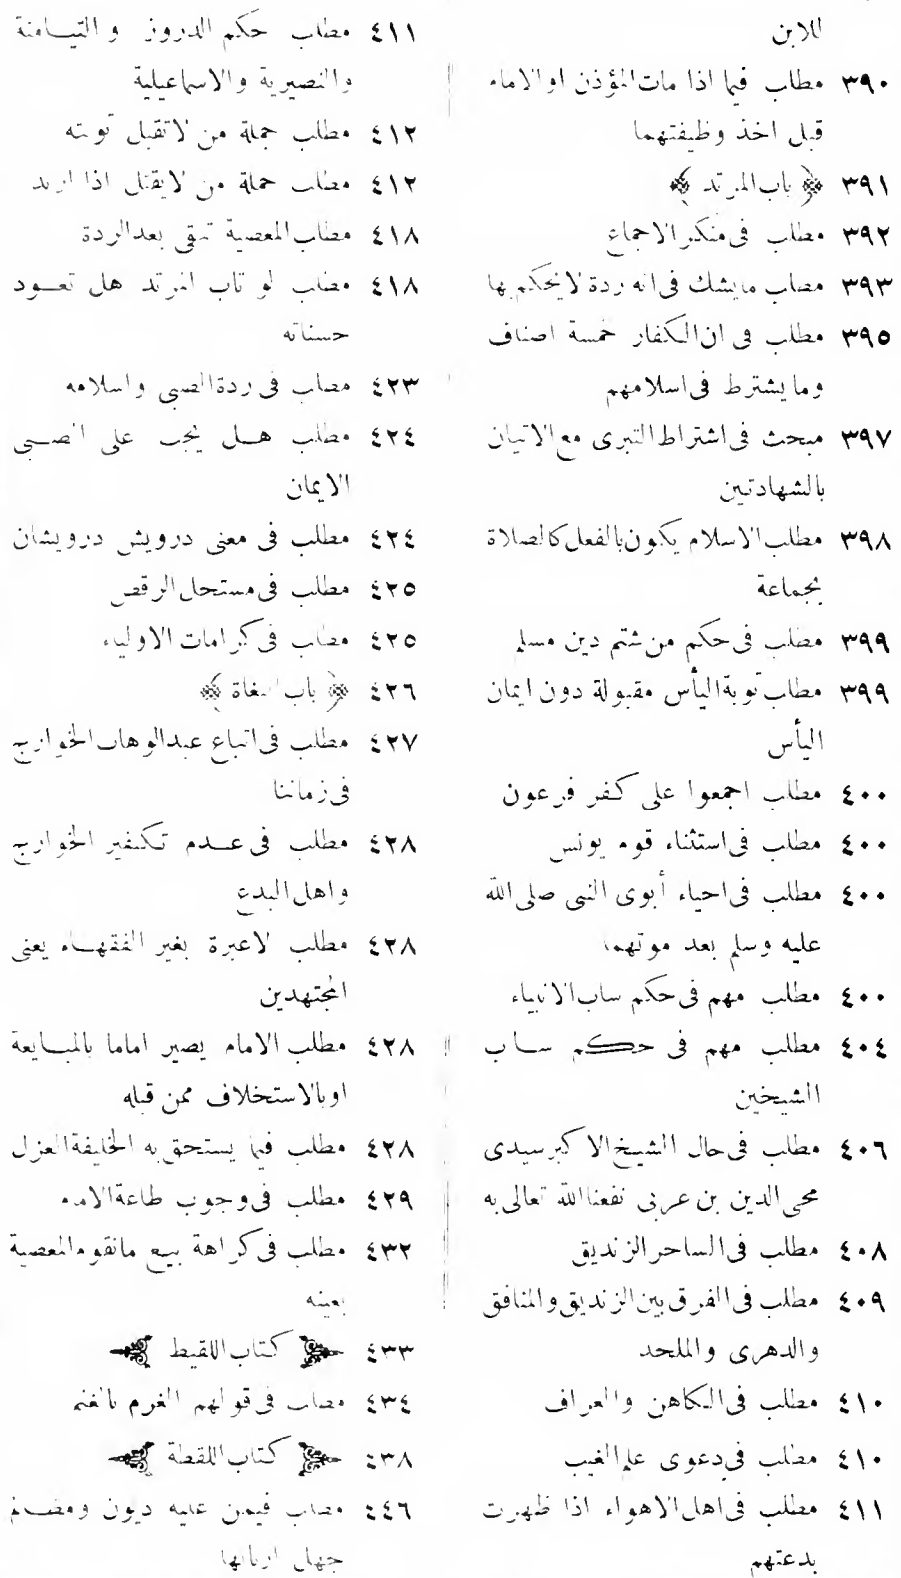 للابن
٣٩٠ مطلب فيما اذا مات المؤذن او الامام
قبل اخذ وظيفتهما
٣٩١ ﴿ باب المرتد ﴾
٣٩٢ مطلب فى منكر الاجماع
٣٩٣ مطلب مايشك فى انه ردة لايحكم بها
٣٩٥ مطلب فى ان الكفار خمسة اصناف
وما يشترط فى اسلامهم
٣٩٧ مبحث فى اشتراط التبرى مع الاتيان
بالشهادتين
٣٩٨ مطلب الاسلام يكون بالفعل كالصلاة
بجماعة
٣٩٩ مطلب فى حكم من شتم دين مسلم
٣٩٩ مطلب توبة اليأس مقبولة دون ايمان
اليأس
٤٠٠ مطلب اجمعوا على كفر فرعون
٤٠٠ مطلب فى استثناء قوم يونس
٤٠٠ مطلب فى احياء أبوى النبى صلى الله
عليه وسلم بعد موتهما
٤٠٠ مطلب مهم فى حكم ساب الانبياء
٤٠٤ مطلب مهم فى حكم ساب
الشيخين
٤٠٦ مطلب فى حال الشيخ الاكبر سيدى
محى الدين بن عربى نفعنا الله تعالى به
٤٠٨ مطلب فى الساحر الزنديق
٤٠٩ مطلب فى الفرق بين الزنديق والمنافق
والدهرى والملحد
٤١٠ مطلب فى الكاهن والعراف
٤١٠ مطلب فى دعوى علم الغيب
٤١١ مطلب فى اهل الاهواء اذا ظهرت
بدعتهم
٤١١ مطلب حكم الدروز والتيامنة
والنصيرية والاسماعيلية
٤١٢ مطلب جملة من لاتقبل توبته
٤١٢ مطلب جملة من لايقتل اذا ارتد
٤١٨ مطلب المعصية تبقى بعد الردة
٤١٨ مطلب لو تاب المرتد هل تعود
حسناته
٤٢٣ مطلب فى ردة الصبى واسلامه
٤٢٤ مطلب هل يجب على الصبى
الايمان
٤٢٤ مطلب فى معنى درويش درويشان
٤٢٥ مطلب فى مستحل الرقص
٤٢٥ مطلب فى كرامات الاولياء
٤٢٦ ﴿ باب البغاة ﴾
٤٢٧ مطلب فى اتباع عبدالوهاب الخوارج
فى زماننا
٤٢٨ مطلب فى عدم تكفير الخوارج
واهل البدع
٤٢٨ مطلب لاعبرة بغير الفقهاء يعنى
المجتهدين
٤٢٨ مطلب الامام يصير اماما بالمبايعة
او بالاستخلاف ممن قبله
٤٢٨ مطلب فيما يستحق به الخليفة العزل
٤٢٩ مطلب فى وجوب طاعة الامام
٤٣٢ مطلب فى كراهة بيع ماتقوم المعصية
بعينه
٤٣٣ كتاب اللقيط
٤٣٤ مطلب فى قولهم الغرم بالغنم
٤٣٨ كتاب اللقطة
٤٤٦ مطلب فيمن عليه ديون ومظالم
جهل اربابها